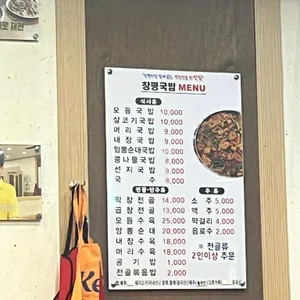 창평국밥 MENU
식사류
모듬국밥 10,000
살코기국밥 10,000
머리국밥 9,000
내장국밥 9,000
암뽕순대국밥 10,000
콩나물국밥 8,000
선지국밥 9,000
국수 8,000
전골·안주류
막창전골 14,000
곱창전골 13,000
모듬수육 25,000
암뽕순대 20,000
내장수육 18,000
머리수육 18,000
공기밥 1,000
전골볶음밥 2,000
주류
소주 5,000
맥주 5,000
막걸리 4,000
음료수 2,000
※ 전골류
2인이상 주문